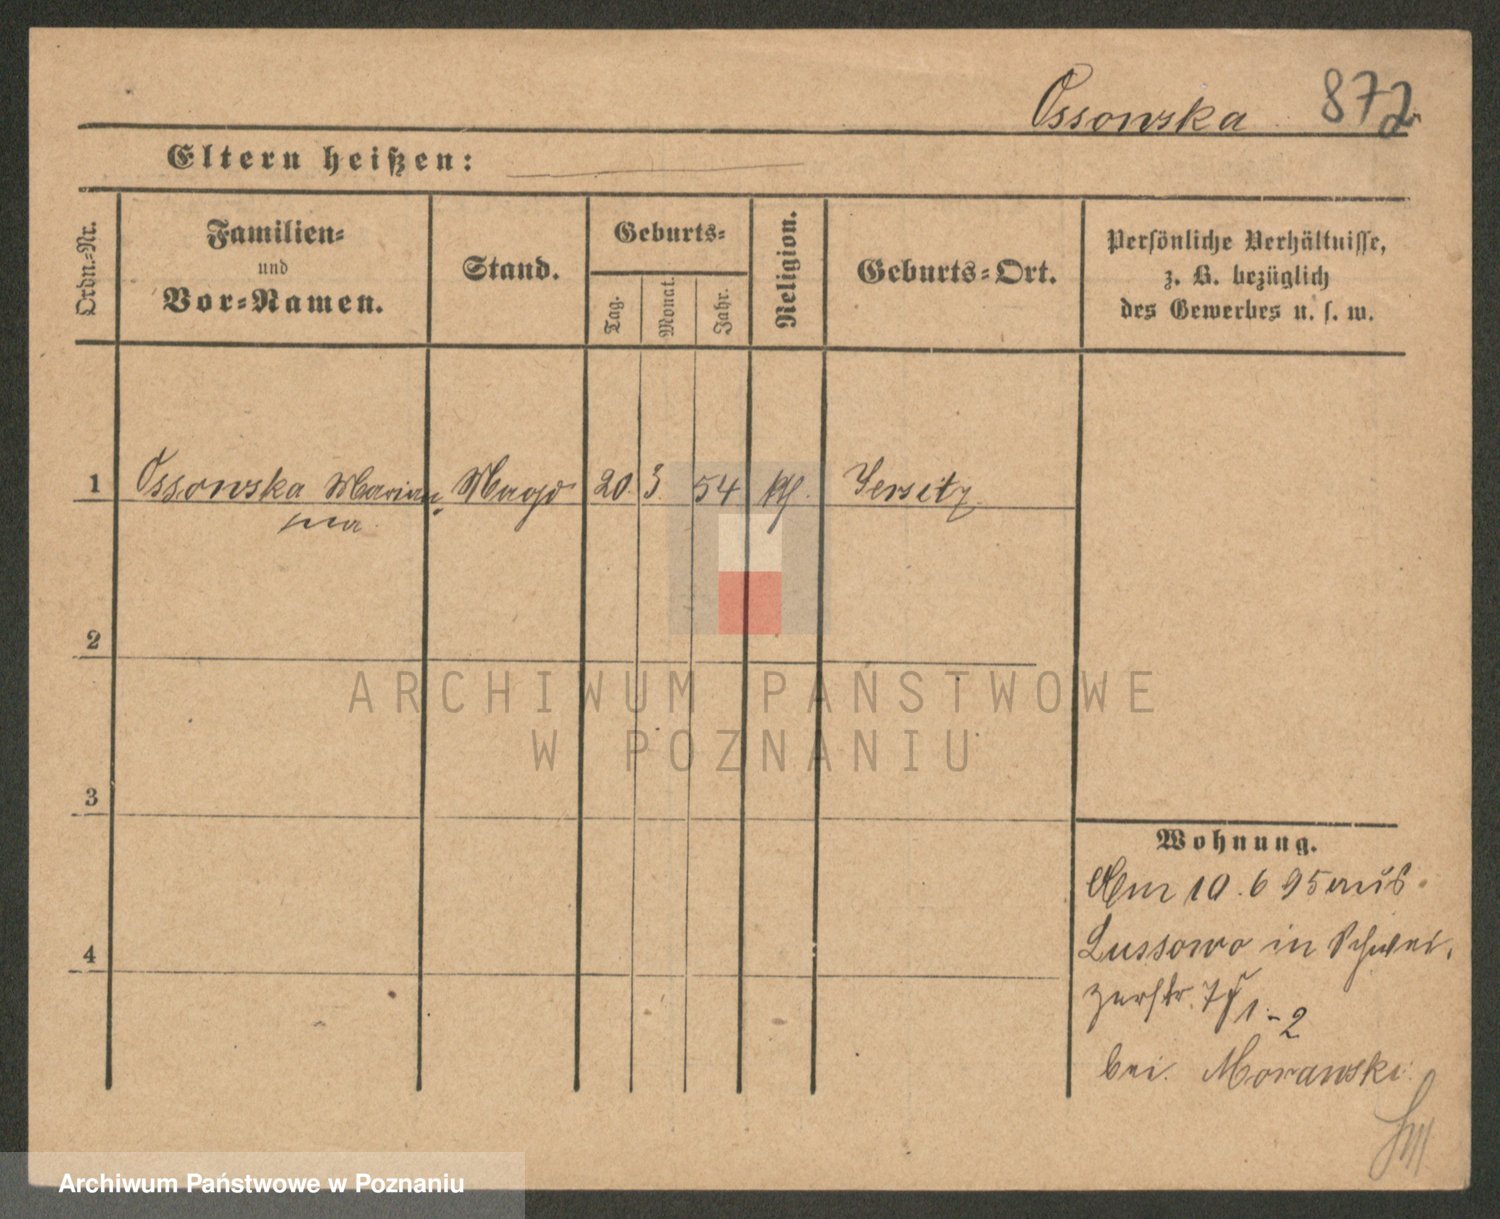 Ossowska 872
Eltern heißen:
Ordn.-Nr.
Familien-
und
Vor-Namen.
Stand.
Geburts-
Tag.
Monat.
Jahr.
Religion.
Geburts-Ort.
Persönliche Verhältnisse,
z. B. bezüglich
des Gewerbes u. s. w.
1 Ossowska Marian Magd 20. 3. 54 kth. Jersitz
na
2
ARCHIWUM PAŃSTWOWE
W POZNANIU
3
Wohnung.
Am 10.6 95 aus
4
Lussowo in Schwei-
zerstr.
bei Morawski
Archiwum Państwowe w Poznaniu